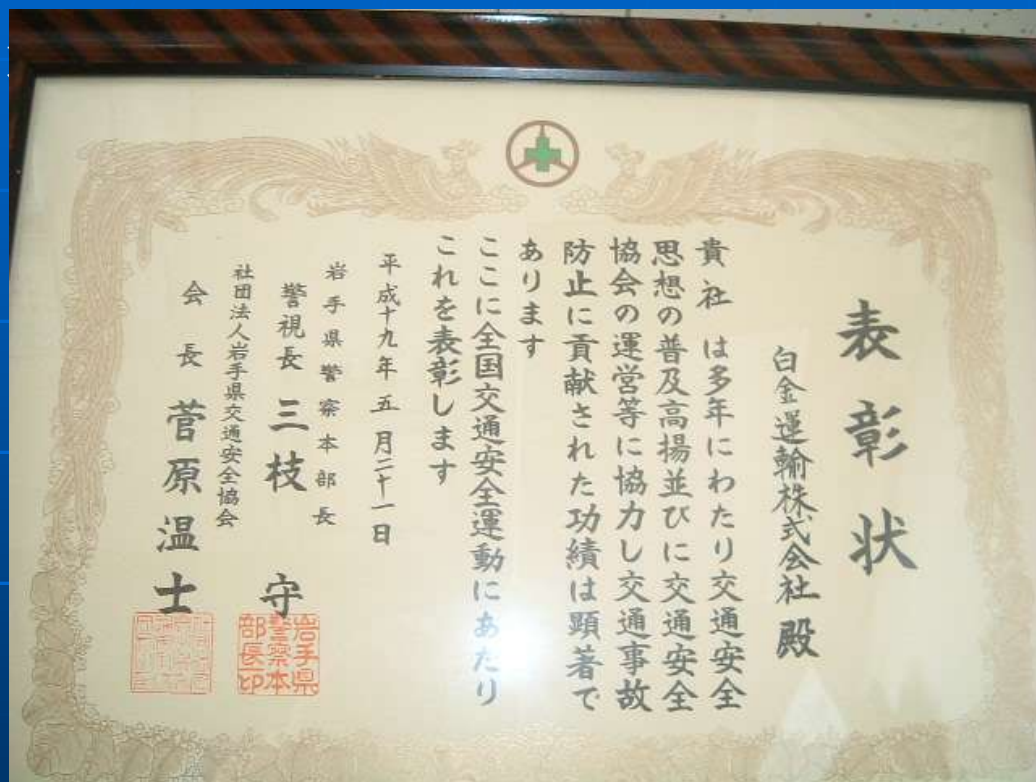 表彰状
白金運輸株式会社殿
貴社は多年にわたり交通安全
思想の普及高揚並びに交通安全
協会の運営等に協力し交通事故
防止に貢献された功績は顕著で
あります
ここに全国交通安全運動にあたり
これを表彰します
平成十九年五月二十一日
岩手県警察本部長
警視長 三枝 守
社団法人岩手県交通安全協会
会長 菅原温士
岩手県
警察本
部長印